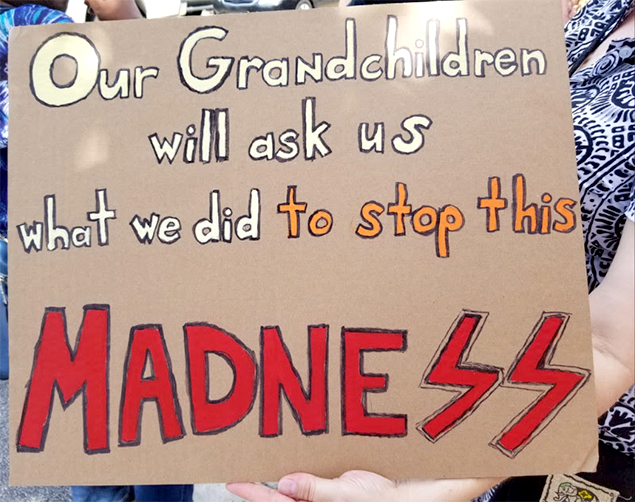 Our Grandchildren
will ask us
what we did to stop this
MADNESS